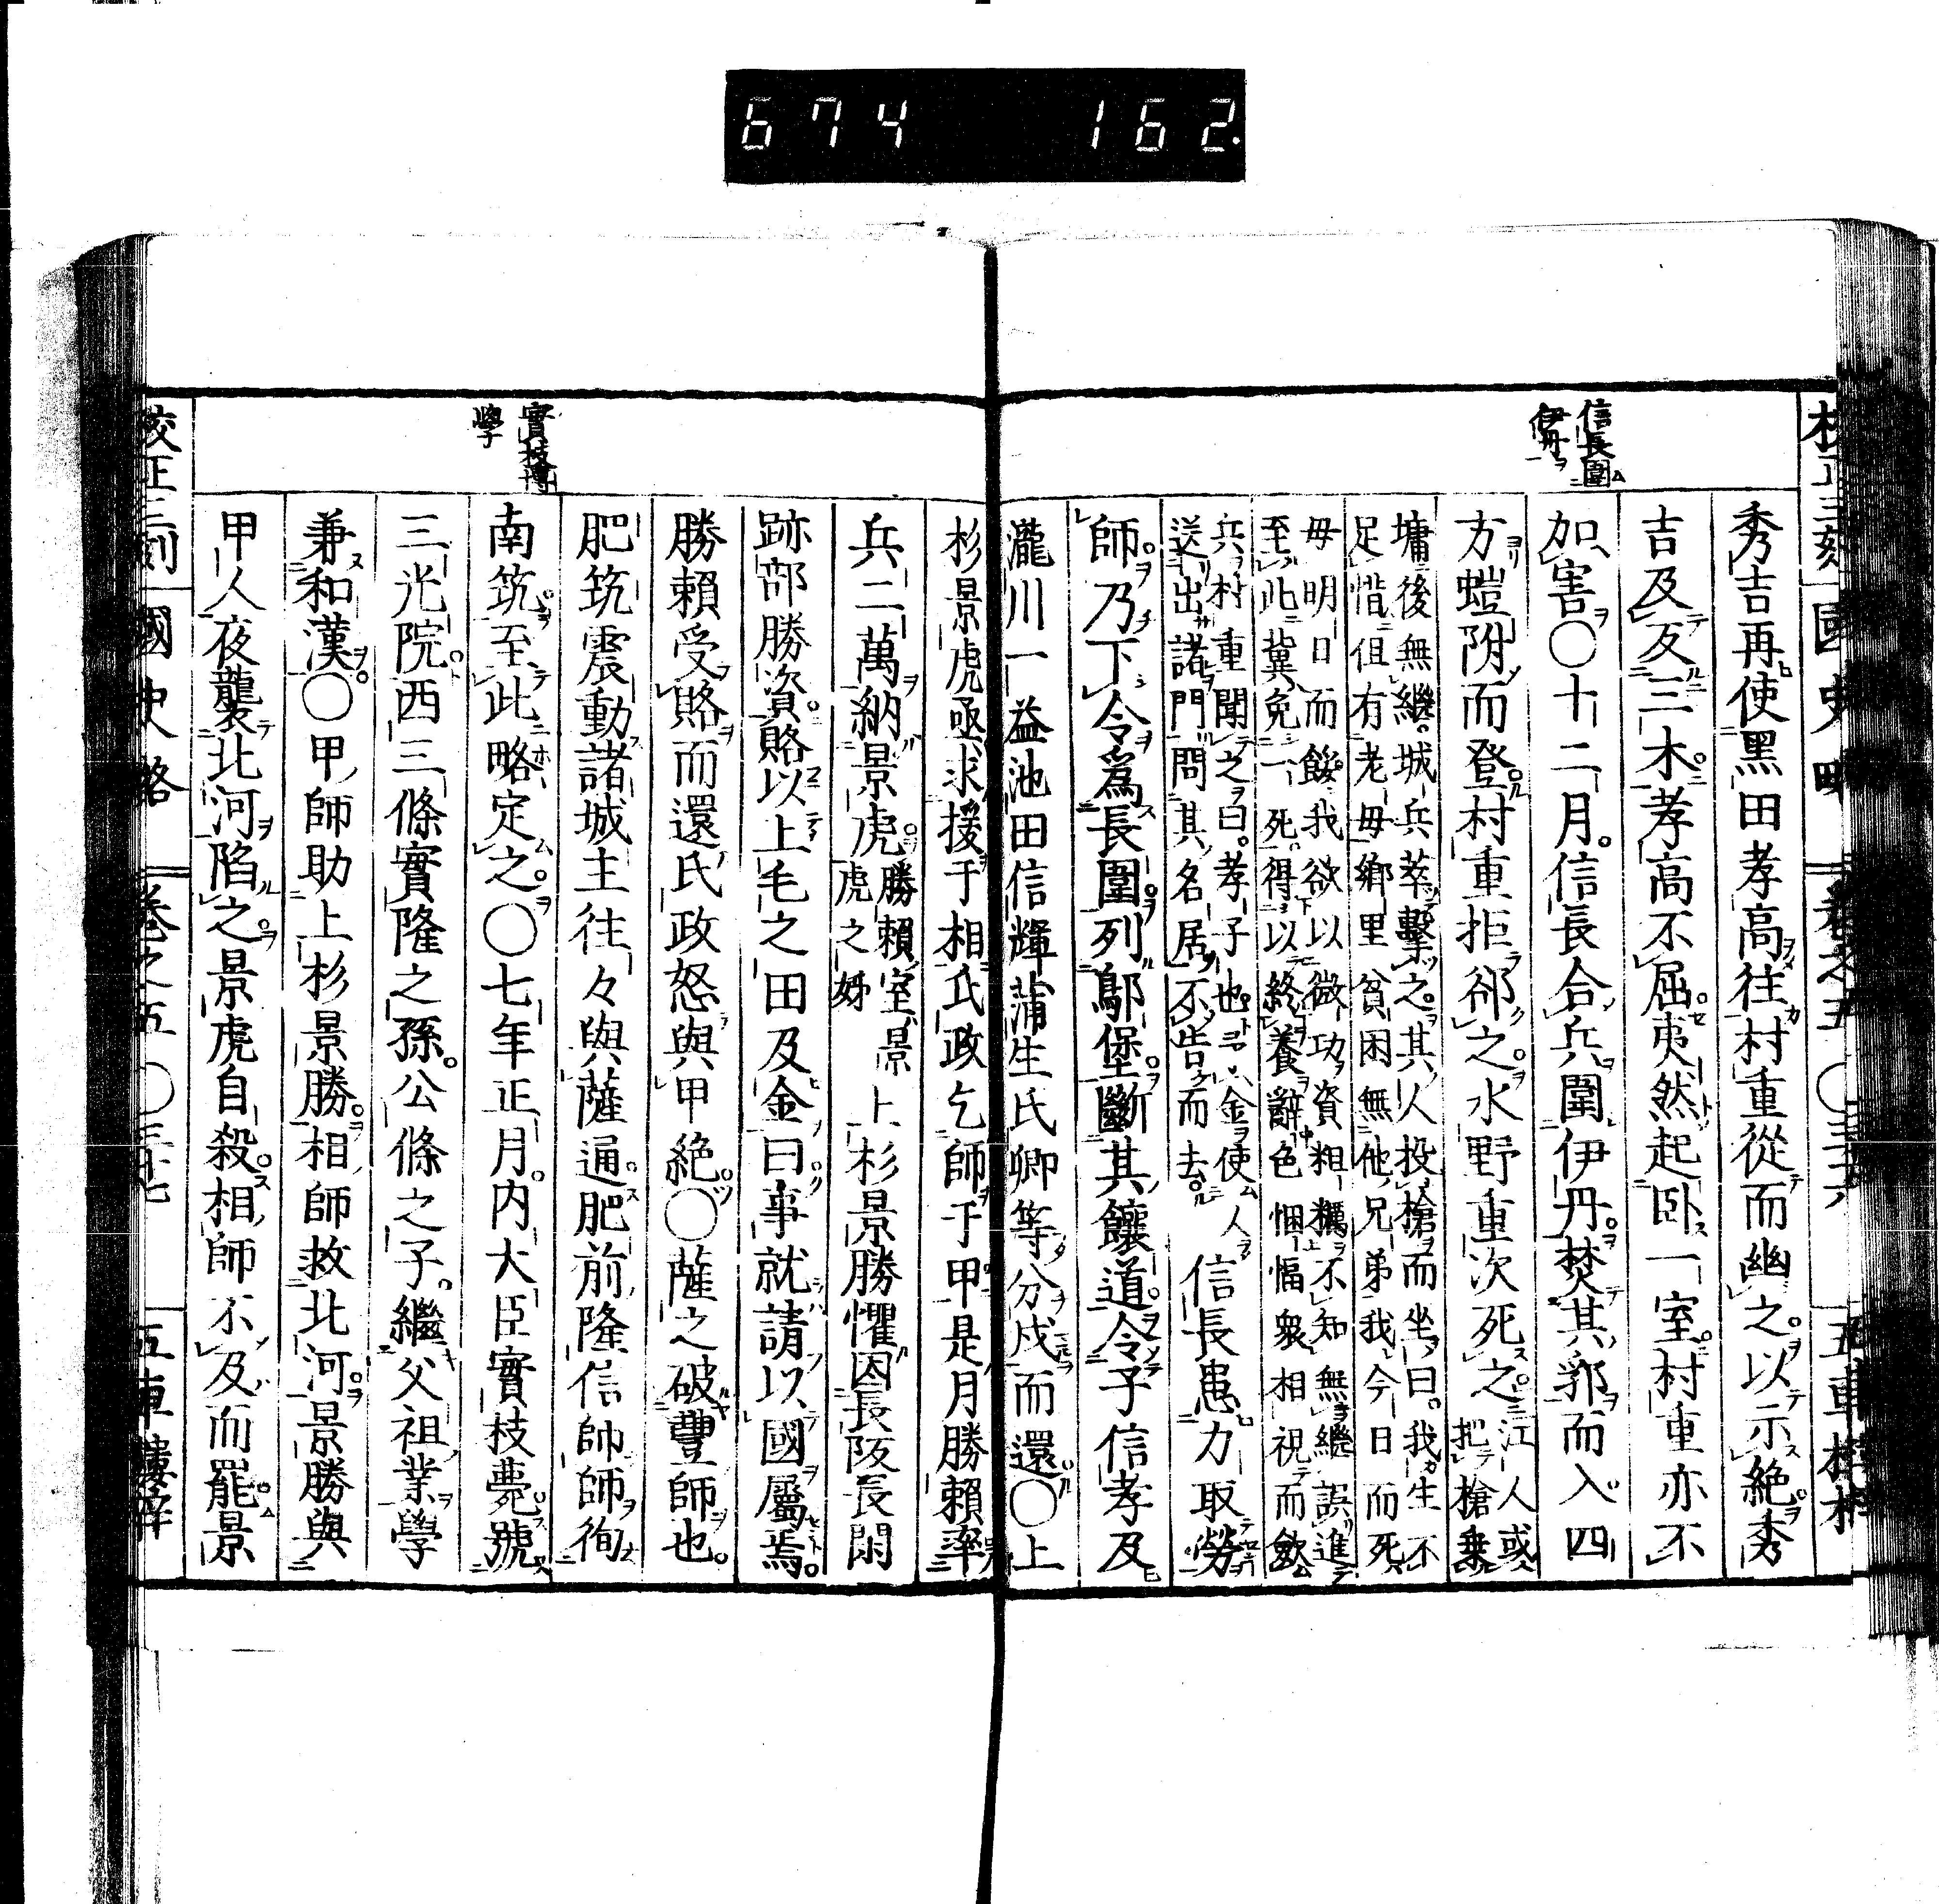 674 162.
校正三刻 國史略 卷之五 〇三六 五車樓梓
信長圍
伊丹
秀吉再使黑田孝高往村重從而幽之以示絶秀
吉及反三木孝高不屈夷然起臥一室村重亦不
加害〇十二月信長合兵圍伊丹焚其郛而入四
方螘附而登村重拒郤之水野重次死之
江人或
把槍乘
墉後無繼城兵萃擊之其人投槍而坐曰我生不
足惜但有老母鄉里貧困無他兄弟我今日而死
母明日而餒我欲以微功資粗糲不知無繼誤進
至此冀免一死得以終養辭色悃愊衆相視而歛
兵村重聞之曰孝子也與金使人
送出諸門問其名居不告而去
信長患力取勞
師乃下令爲長圍列鄢堡斷其饟道令子信孝及
瀧川一益池田信輝蒲生氏卿等分戍而還〇上
杉景虎亟求援于相氏政乞師于甲是月勝賴率
兵二萬納景虎
勝賴室景
虎之姊
上杉景勝懼因長阪長閑
跡部勝資賂以上毛之田及金曰事就請以國屬焉
勝賴受賂而還氏政怒與甲絶〇薩之破豐師也
肥筑震動諸城主往々與薩通肥前隆信帥師徇
南筑至此略定之〇七年正月内大臣實枝薨號
三光院西三條實隆之孫公條之子繼父祖業學
兼和漢〇甲師助上杉景勝相師救北河景勝與
甲人夜襲北河陷之景虎自殺相師不及而罷景
實枝博
學
校正三刻 國史略 卷之五 〇三七 五車樓梓